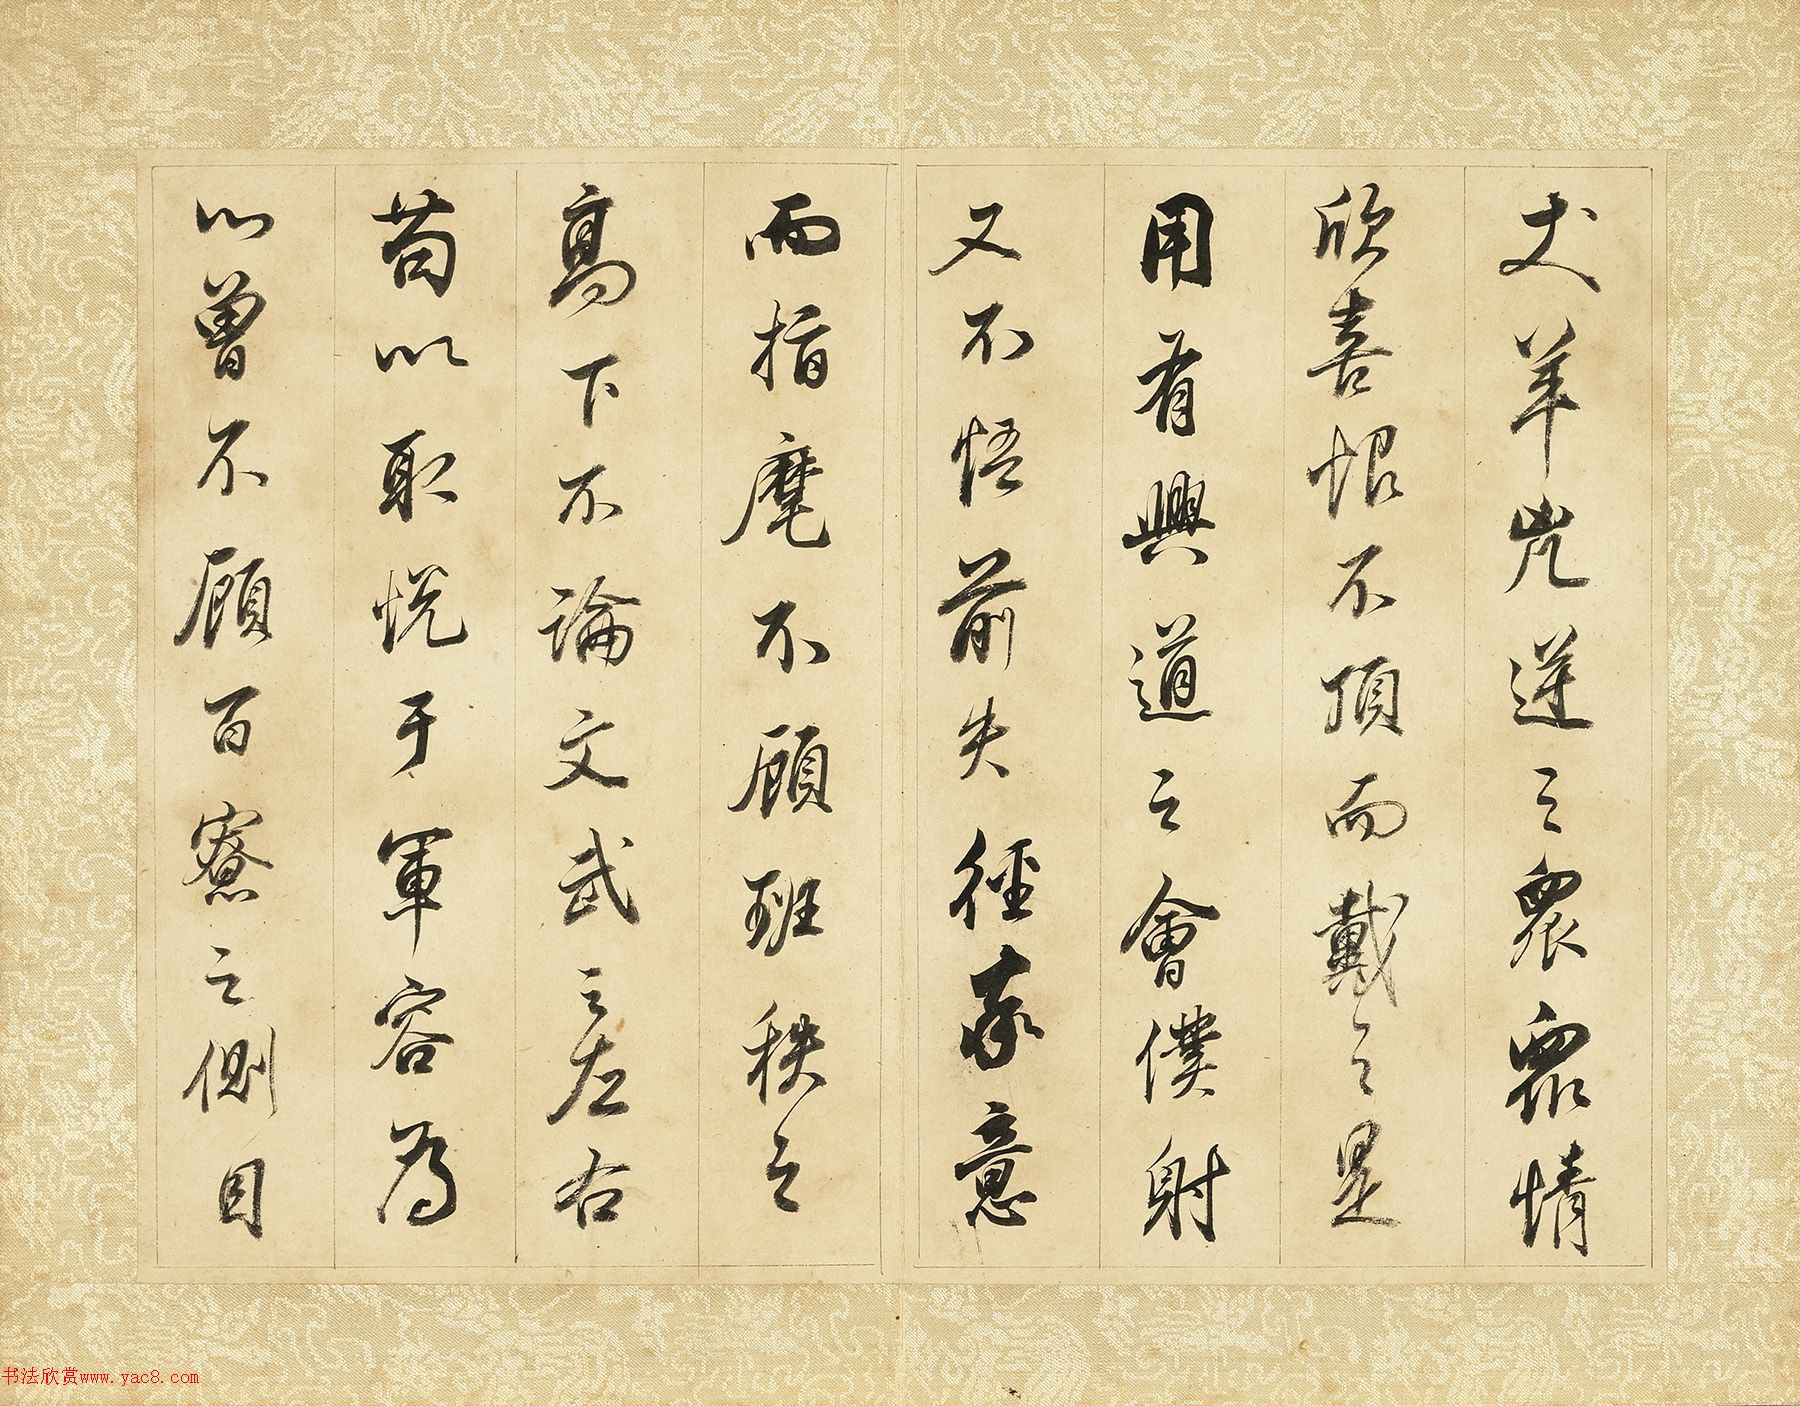 犬羊兇逆之眾眾情
欣喜恨不頂而戴之是
用有興道之會僕射
又不悟前失徑率意
而指麾不顧班秩之
高下不論文武之左右
苟以取悅于軍容為
心曾不顧百寮之側目
书法欣赏www.yac8.com